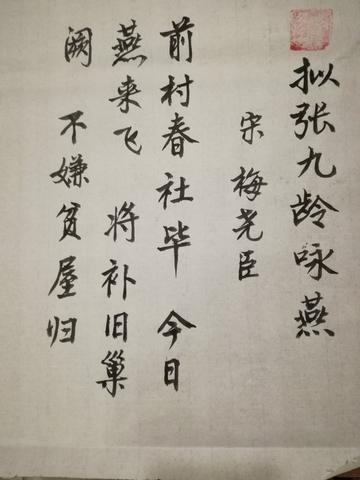 拟张九龄咏燕
宋 梅尧臣
前村春社毕 今日
燕来飞 将补旧巢
阙 不嫌贫屋归